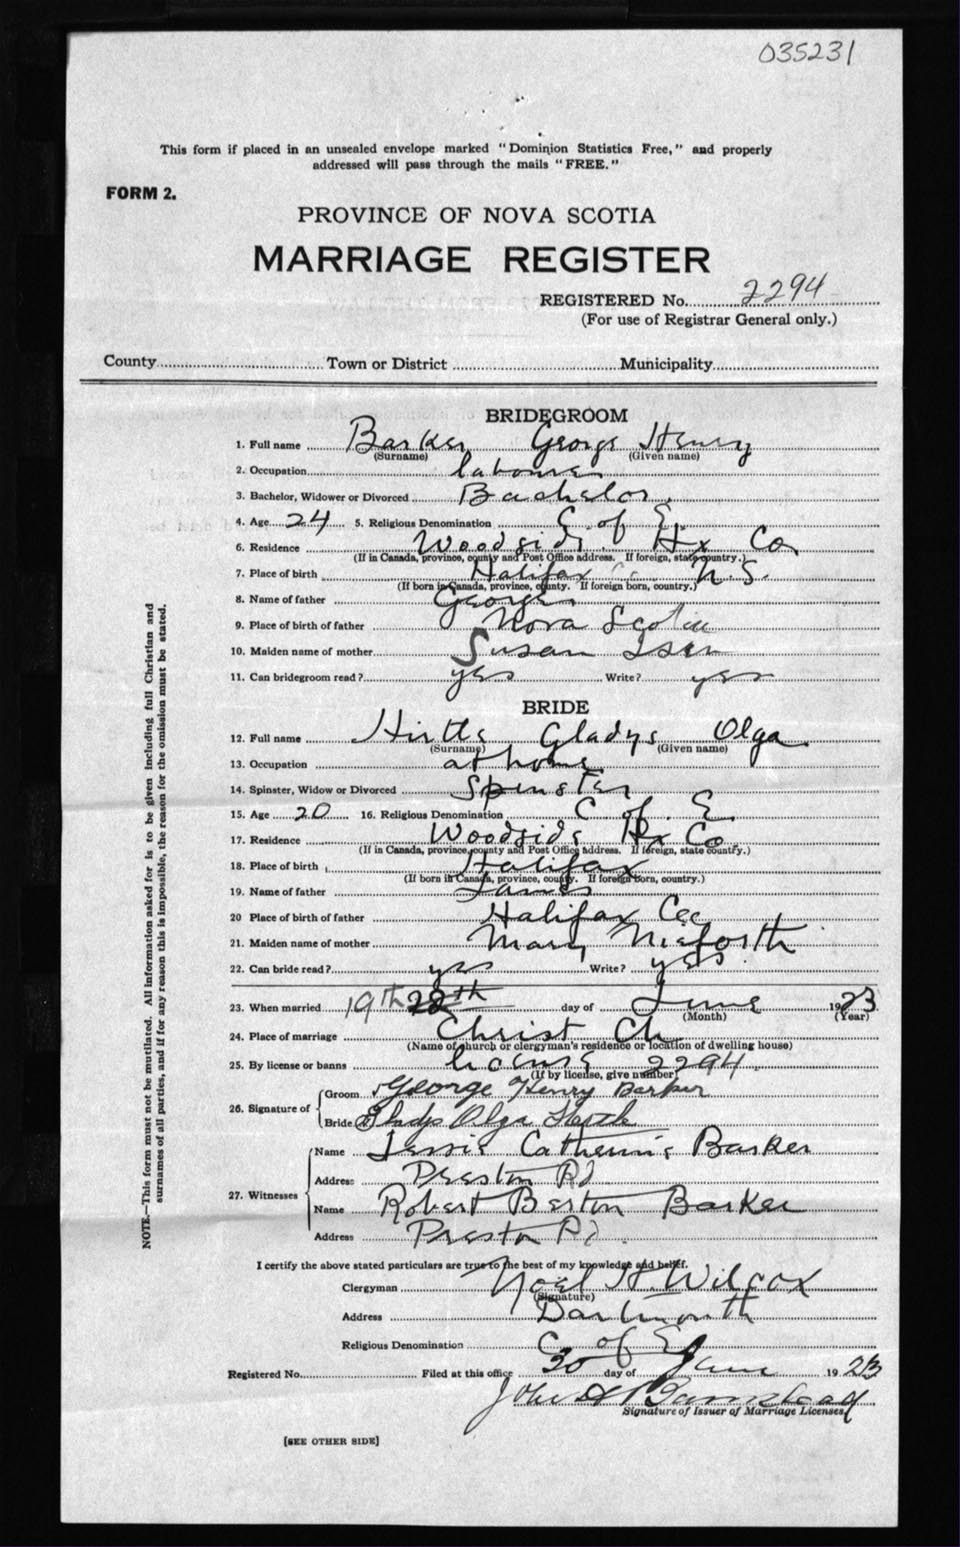 035231
This form if placed in an unsealed envelope marked "Dominion Statistics Free," and properly
addressed will pass through the mails "FREE."
FORM 2.
PROVINCE OF NOVA SCOTIA
MARRIAGE REGISTER
REGISTERED No. 2294
(For use of Registrar General only.)
County Town or District Municipality
BRIDEGROOM
1. Full name Barker George Henry
(Surname) (Given name)
2. Occupation labourer
3. Bachelor, Widower or Divorced Bachelor.
4. Age 24 5. Religious Denomination C. of E.
6. Residence Woodside Hx Co
(If in Canada, province, county and Post Office address. If foreign, state country.)
7. Place of birth Halifax Co N.S.
(If born in Canada, province, county. If foreign born, country.)
8. Name of father George
9. Place of birth of father Nova Scotia
10. Maiden name of mother Susan
11. Can bridegroom read? yes Write? yes
BRIDE
12. Full name Hirtle Gladys Olga
(Surname) (Given name)
13. Occupation at home
14. Spinster, Widow or Divorced Spinster
15. Age 20 16. Religious Denomination C of E
17. Residence Woodside Hx Co
(If in Canada, province, county and Post Office address. If foreign, state country.)
18. Place of birth Halifax
(If born in Canada, province, county. If foreign born, country.)
19. Name of father James
20 Place of birth of father Halifax Co
21. Maiden name of mother Mary Nieforth
22. Can bride read? yes Write? yes.
23. When married 19th 22th day of June 1923
(Month) (Year)
24. Place of marriage Christ Ch
(Name of church or clergyman's residence or location of dwelling house)
25. By license or banns license 2294
(If by license, give number)
26. Signature of Groom George Henry Barker
Bride Gladys Olga Hirtle
27. Witnesses Name Jessie Catherine Barker
Address Preston Rd
Name Robert Berton Barker
Address Preston Rd.
I certify the above stated particulars are true to the best of my knowledge and belief.
Clergyman Noel H. Wilcox
(Signature)
Address Dartmouth
Religious Denomination C of E
Registered No. Filed at this office 30 day of June 1923
John A Barnstead
Signature of Issuer of Marriage Licenses
[SEE OTHER SIDE]
NOTE.—This form must not be mutilated. All information asked for is to be given including full Christian and
surnames of all parties, and if for any reason this is impossible, the reason for the omission must be stated.